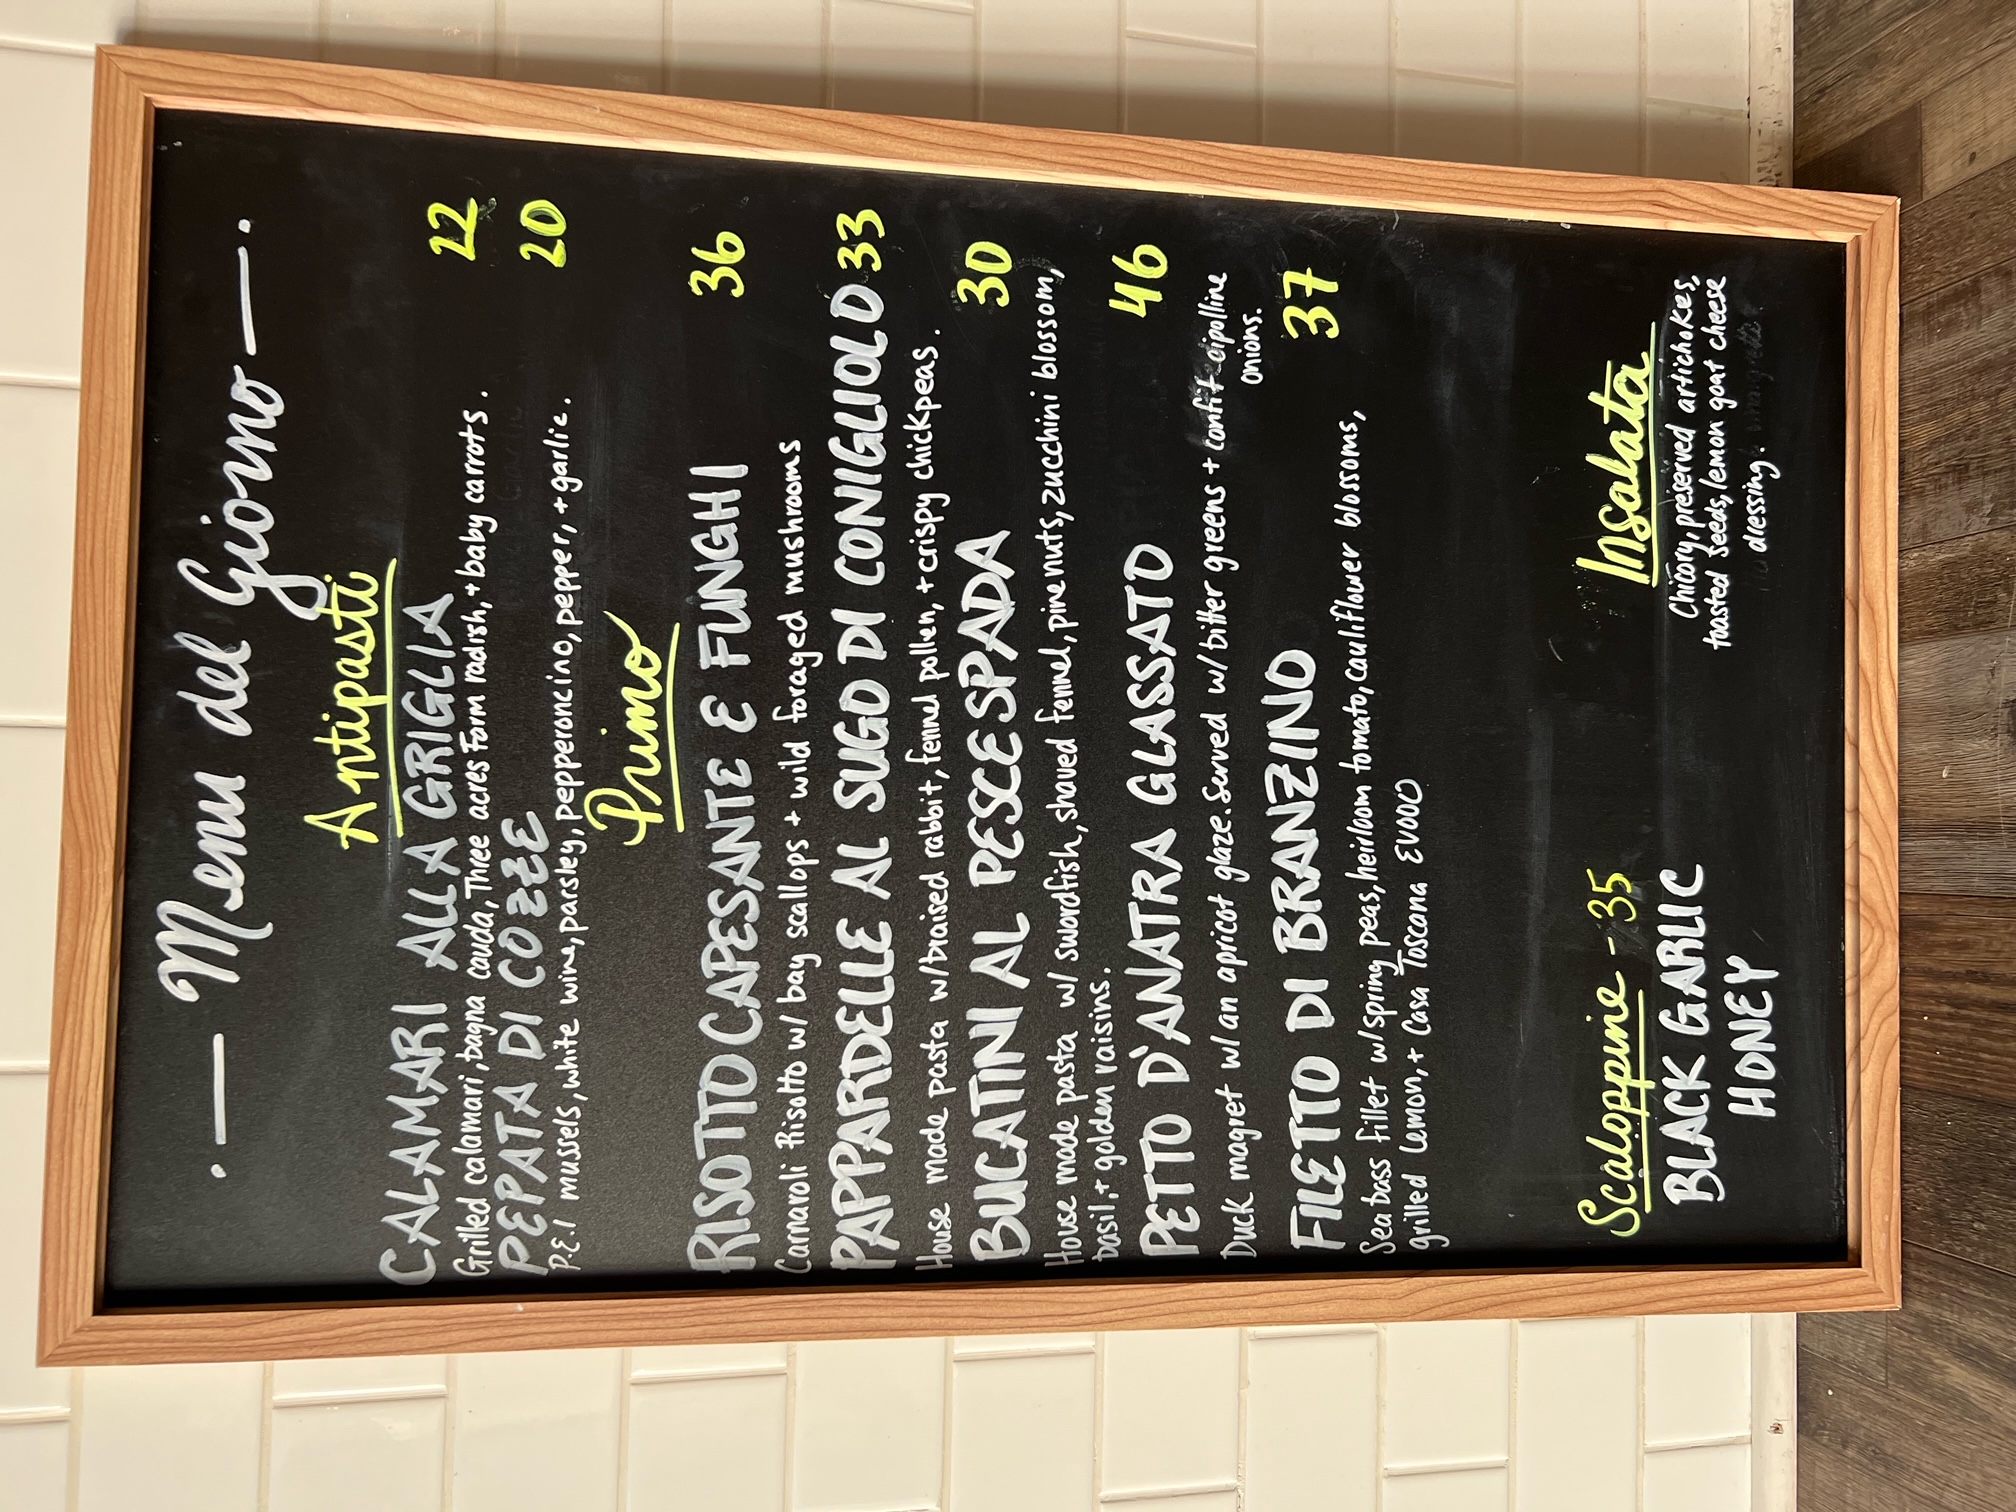 Menu del Giorno
Antipasti
CALAMARI ALLA GRIGLIA 22
Grilled calamari, bagna cauda, Three acres Farm radish, + baby carrots.
PEPATA DI COZZE 20
P.E.I mussels, white wine, parsley, pepperoncino, pepper, + garlic.
Primo
RISOTTO CAPESANTE E FUNGHI 36
Carnaroli Risotto w/ bay scallops + wild foraged mushrooms
PAPPARDELLE AL SUGO DI CONIGLIOLO 33
House made pasta w/braised rabbit, fennel pollen, + crispy chickpeas.
BUCATINI AL PESCE SPADA 30
House made pasta w/ swordfish, shaved fennel, pine nuts, zucchini blossom,
basil, + golden raisins.
PETTO D'ANATRA GLASSATO 46
Duck magret w/ an apricot glaze. Served w/bitter greens + confit cipolline
onions.
FILETTO DI BRANZINO 37
Sea bass fillet w/spring peas, heirloom tomato, cauliflower blossoms,
grilled lemon, + Casa Toscana EVOO
Scaloppine - 35
BLACK GARLIC
HONEY
Insalata
Chicory, preserved artichokes,
toasted seeds, lemon goat cheese
dressing.